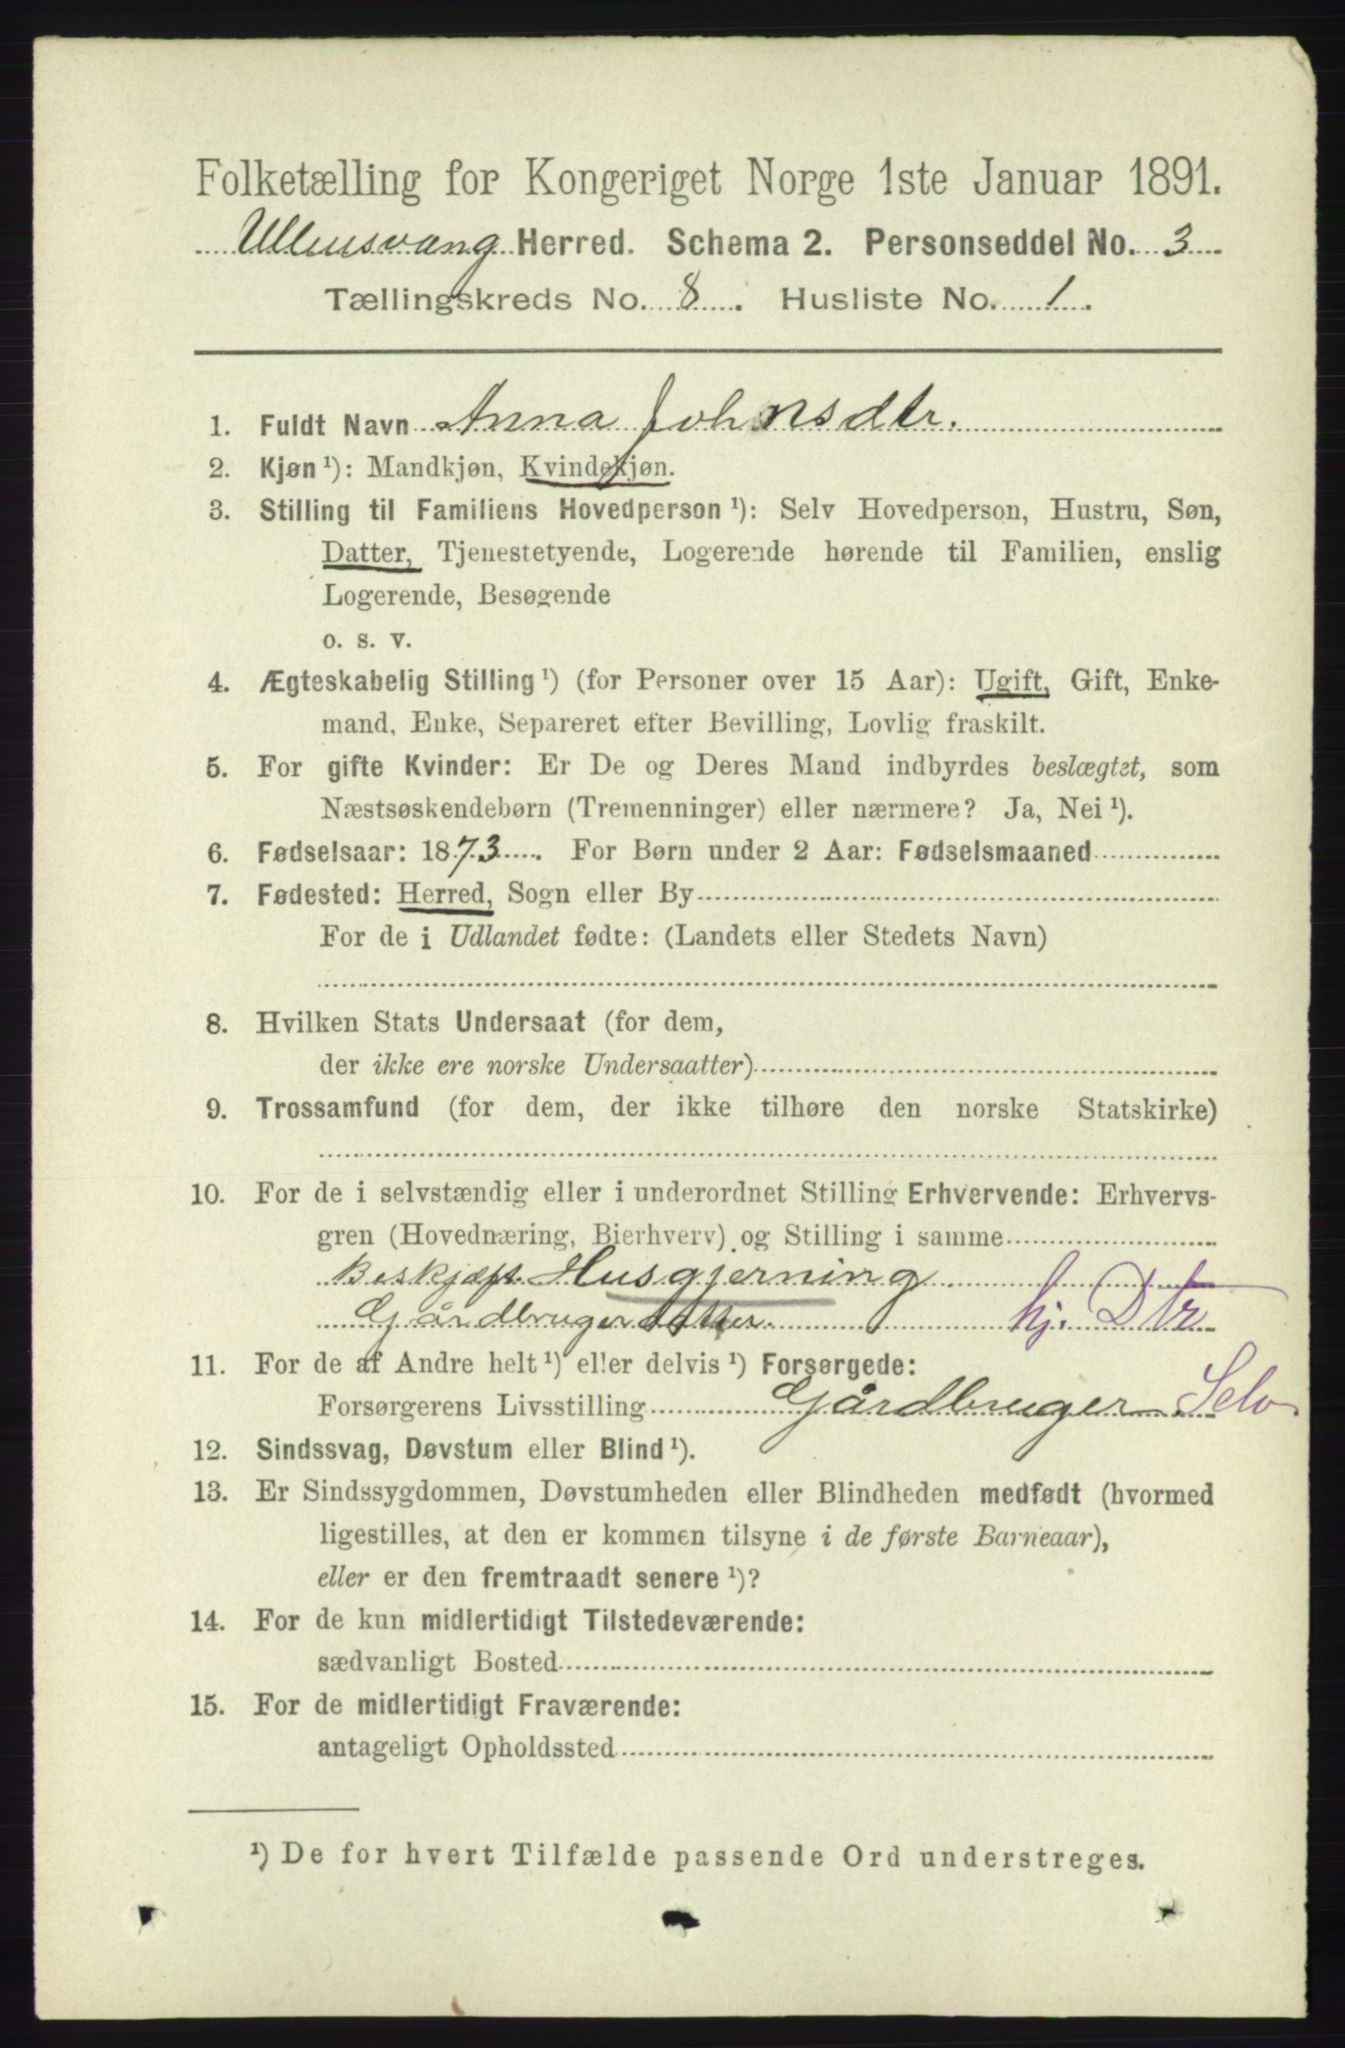 Folketælling for Kongeriget Norge 1ste Januar 1891.
Ullensvang Herred. Schema 2. Personseddel No. 3
Tællingskreds No. 8. Husliste No. 1.
1. Fuldt Navn Anna Johnsdtr.
2. Kjøn ¹): Mandkjøn, Kvindekjøn.
3. Stilling til Familiens Hovedperson ¹): Selv Hovedperson, Hustru, Søn,
Datter, Tjenestetyende, Logerende hørende til Familien, enslig
Logerende, Besøgende
o. s. v.
4. Ægteskabelig Stilling ¹) (for Personer over 15 Aar): Ugift, Gift, Enke-
mand, Enke, Separeret efter Bevilling, Lovlig fraskilt.
5. For gifte Kvinder: Er De og Deres Mand indbyrdes beslægtet, som
Næstsøskendebørn (Tremenninger) eller nærmere? Ja, Nei ¹).
6. Fødselsaar: 1873. For Børn under 2 Aar: Fødselsmaaned
7. Fødested: Herred, Sogn eller By
For de i Udlandet fødte: (Landets eller Stedets Navn)
8. Hvilken Stats Undersaat (for dem,
der ikke ere norske Undersaatter)
9. Trossamfund (for dem, der ikke tilhøre den norske Statskirke)
10. For de i selvstændig eller i underordnet Stilling Erhvervende: Erhvervs-
gren (Hovednæring, Bierhverv) og Stilling i samme
Beskjæft. Husgjerning
Gårdbrugerdatter. hj. Dtr
11. For de af Andre helt ¹) eller delvis ¹) Forsørgede:
Forsørgerens Livsstilling Gårdbruger Selv
12. Sindssvag, Døvstum eller Blind ¹).
13. Er Sindssygdommen, Døvstumheden eller Blindheden medfødt (hvormed
ligestilles, at den er kommen tilsyne i de første Barneaar),
eller er den fremtraadt senere ¹)?
14. For de kun midlertidigt Tilstedeværende:
sædvanligt Bosted
15. For de midlertidigt Fraværende:
antageligt Opholdssted
¹) De for hvert Tilfælde passende Ord understreges.